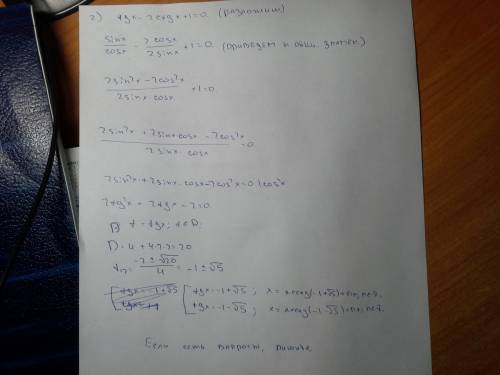 2) tgx - 2ctgx + 1 = 0. (разложим)
sinx/cosx - 2cosx/2sinx + 1 = 0. (приведем к общ. знамен.)
2sin²x - 2cos²x / 2sinx·cosx + 1 = 0.
2sin²x + 2sinx·cosx - 2cos²x / 2sinx·cosx = 0.
2sin²x + 2sinx·cosx - 2cos²x = 0 |cos²x
2tg²x + 2tgx - 2 = 0.
t = tgx; t∈R;
D = 4 + 4·2·2 = 20
t₁,₂ = -2 ± √20 / 4 = -1 ± √5
tgx = -1 + √5 [ tgx = -1 + √5 ; x = arctg(-1+√5) + πn; n∈Z.
tgx = -1 - √5 ; x = arctg(-1-√5) + πn; n∈Z.
Если есть вопросы, пишите